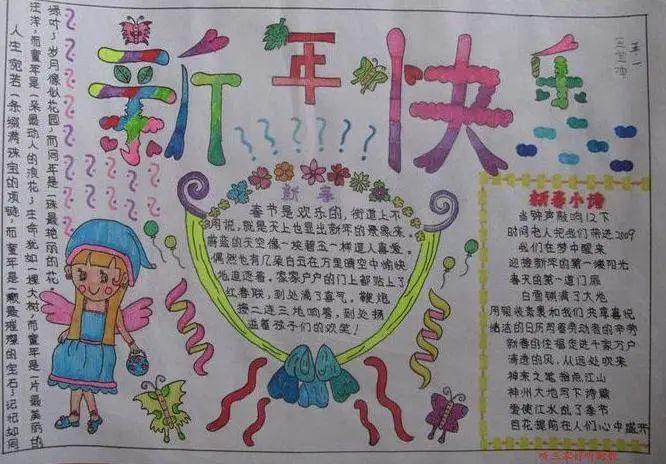 新年快乐
五一
新春
春节是欢乐的,街道上不
用说,就是天上也显出新年的景象来。
蔚蓝的天空像一块碧玉一样逗人喜爱。
偶然也有几朵白云在万里晴空中愉快
地逗逐着。家家户户的门上都贴上了
红春联,到处满了喜气,鞭炮
接二连三地响着,到处扬
溢着孩子们的欢笑!
新春小诗
当钟声敲响12下
时间老人把我们带进2009
我们在梦中醒来
迎接新年的第一缕阳光
春天的第一道门扉
白雪铺满了大地
用银装素裹和我们共享喜悦
皓洁的日历用着劳动者的辛劳
新春的祝福走进千家万户
清造的风,从远处吹来
神来之笔指点江山
神州大地写下诗藏
爱使江水乱了季节
百花提前在人们心中盛开
人生宛若一条缀满珠宝的项链,而童年是一颗最璀璨的宝石;记忆如同
汪洋,而童年是一朵最动人的浪花;生命犹如一棵大树,而童年是一片最美丽的
绿叶;岁月像似花园,而同年是一珠最艳丽的花